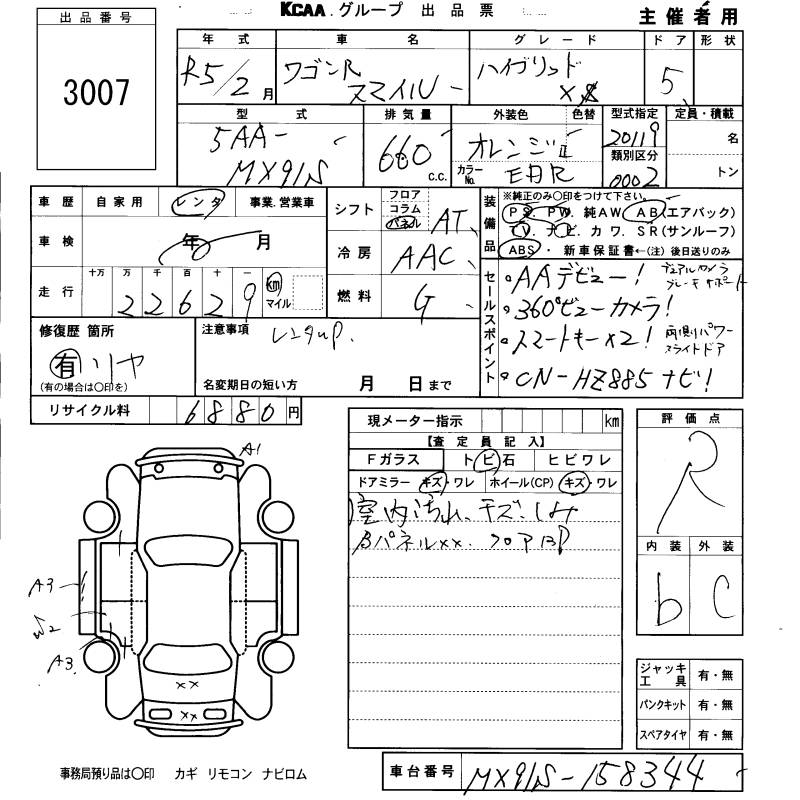 KCAA グループ 出品票
主催者用
出品番号
3007
年式 車名 グレード ドア 形状
R5/2月 ワゴンR スマイル ハイブリッド X 5
型式 排気量 外装色 色替 型式指定 定員・積載
5AA-MX91S 660 c.c. オレンジⅡ 20119 名
カラーNo. EBR 類別区分 0002 トン
車歴 自家用 レンタ 事業.営業車
車検 年 月
走行 十万 万 千 百 十 一
22629 km マイル
シフト フロア コラム パネル AT
冷房 AAC
燃料 G
装備品 ※純正のみ〇印をつけて下さい。
PS. PW. 純AW AB(エアバック)
TV ナビ カワ SR(サンルーフ)
ABS ・ 新車保証書←(注) 後日送りのみ
セールスポイント
。AAデビュー! デュアルカメラブレーキサポート
。360°ビューカメラ!
。スマートキーx2! 両側パワースライドドア
。CN-HZ885ナビ!
修復歴 箇所
有 リヤ
(有の場合は〇印を)
注意事項
レンタup.
名変期日の短い方 月 日まで
リサイクル料 6880円
現メーター指示 km
【査定員記入】
Fガラス トビ石 ヒビワレ
ドアミラー キズ・ワレ ホイール(CP) キズ・ワレ
室内汚れ、キズ、しみ
Bパネルxx. フロアBP
評価点
R
内装 外装
b C
A1
A3
W2
A3
xx
xx
ジャッキ工具 有・無
パンクキット 有・無
スペアタイヤ 有・無
事務局預り品は〇印 カギ リモコン ナビロム
車台番号 MX91S-158344